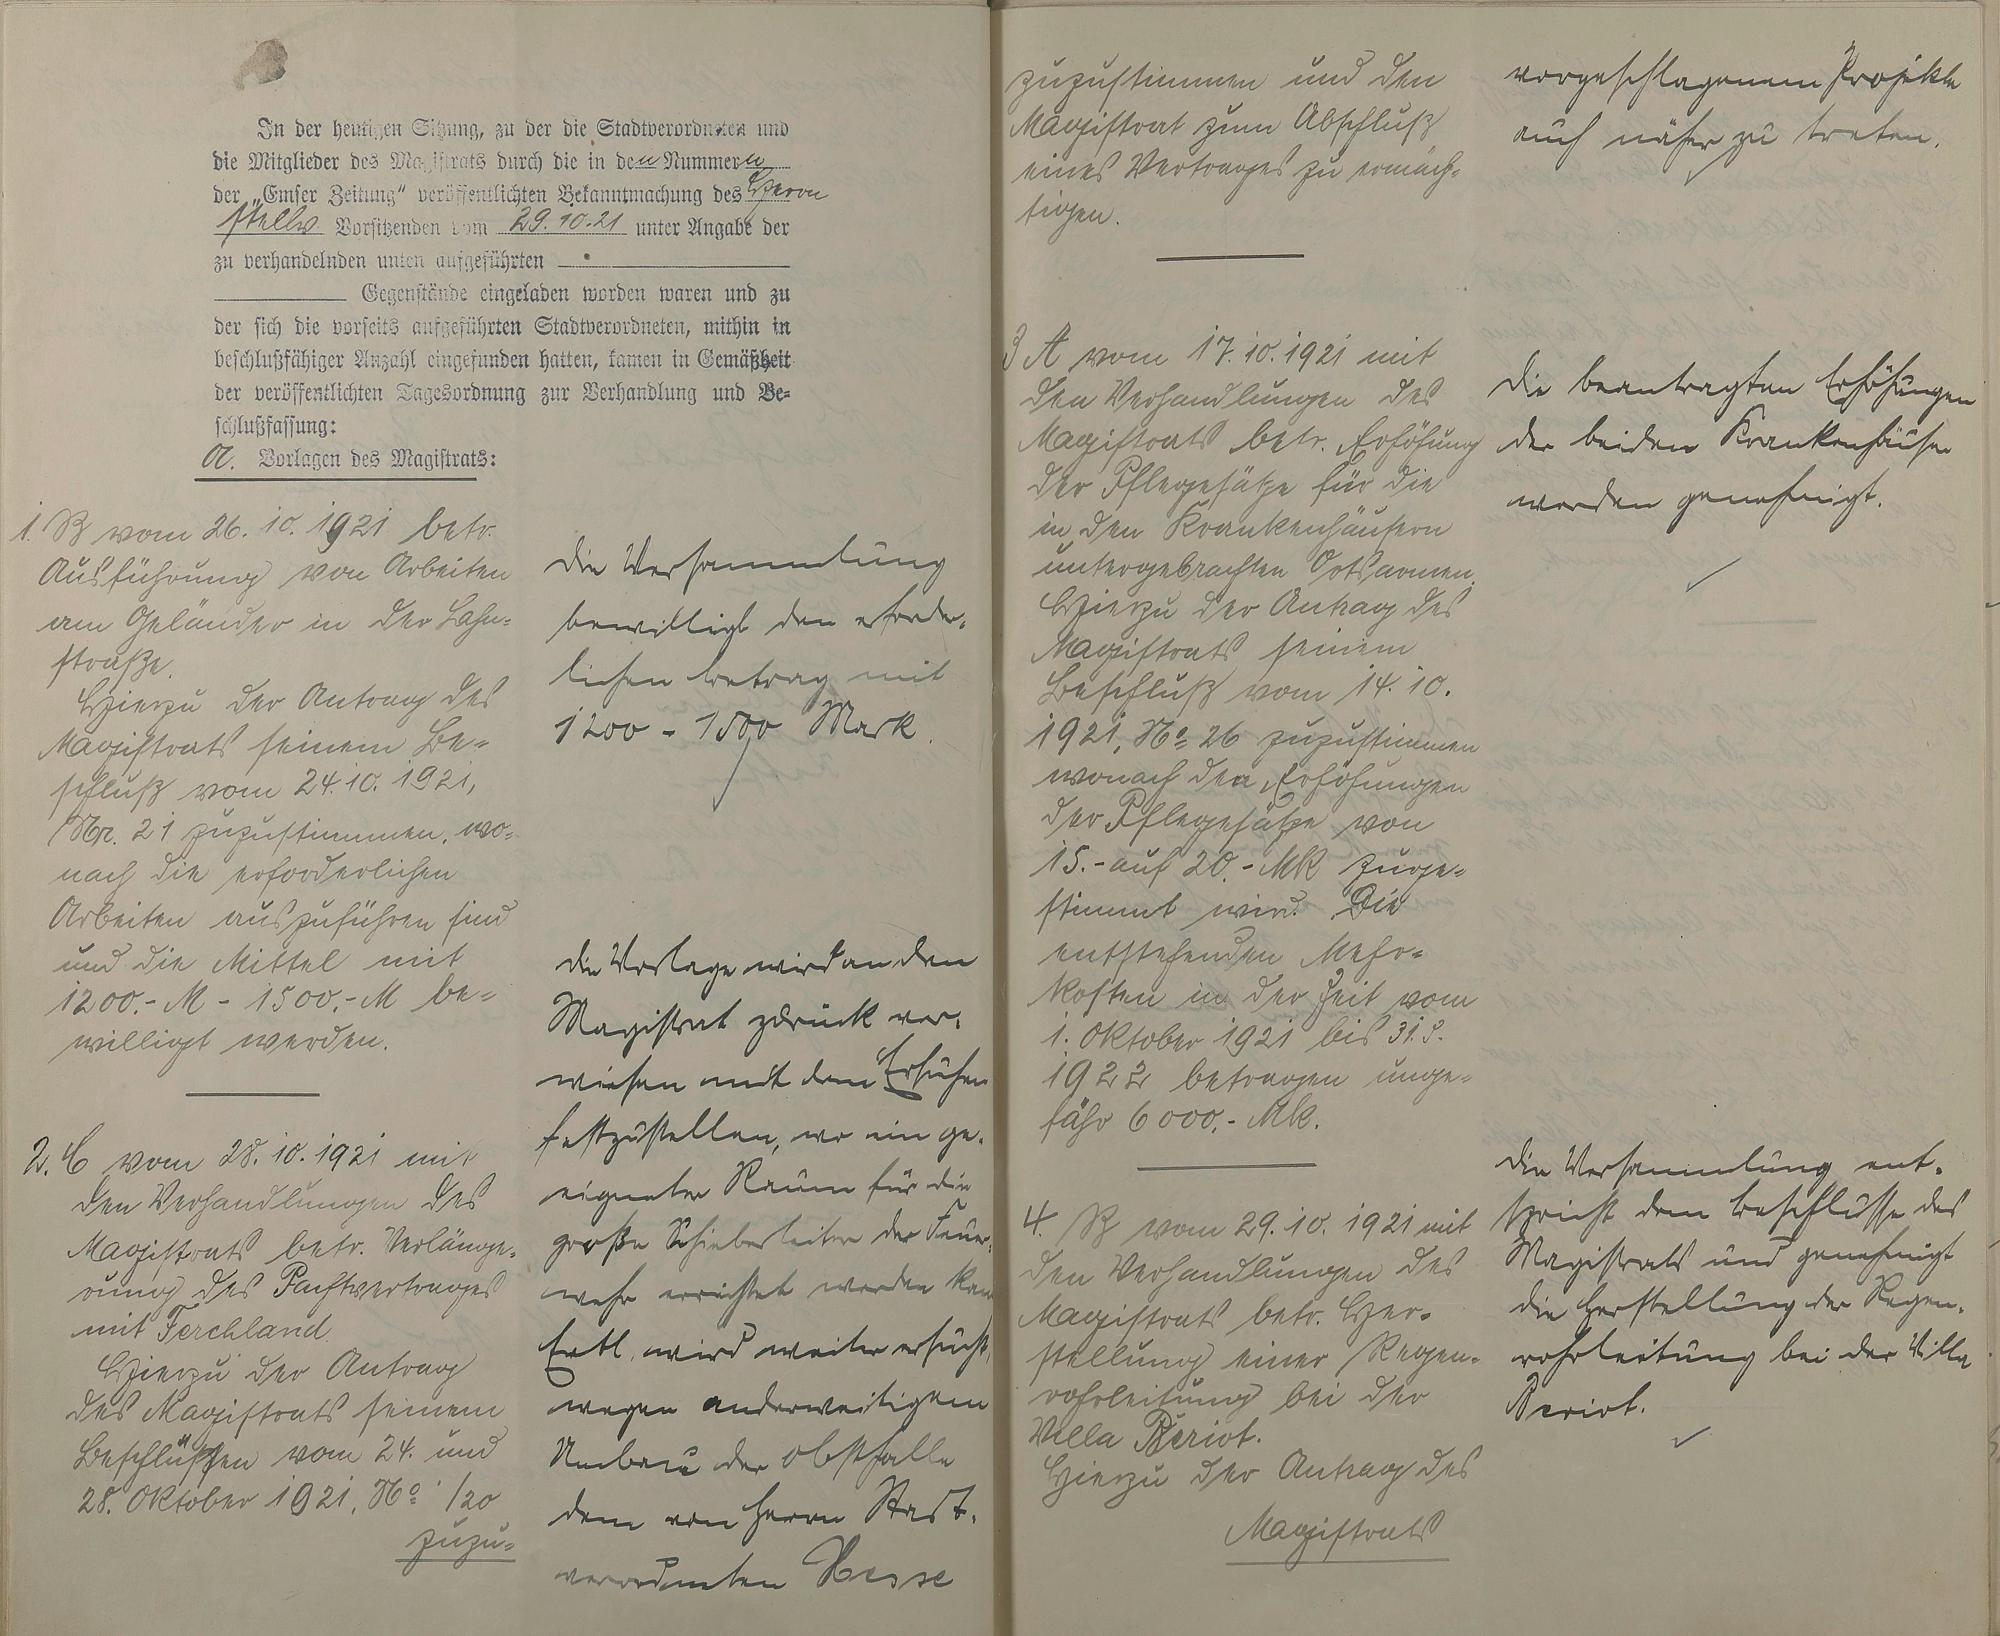 In der heutigen Sitzung, zu der die Stadtverordneten und
die Mitglieder des Magistrats durch die in den Nummern
der „Emser Zeitung“ veröffentlichten Bekanntmachung des Herrn
stellv. Vorsitzenden vom 29.10.21 unter Angabe der
zu verhandelnden unten aufgeführten
Gegenstände eingeladen worden waren und zu
der sich die vorseits aufgeführten Stadtverordneten, mithin in
beschlußfähiger Anzahl eingefunden hatten, kamen in Gemäßheit
der veröffentlichten Tagesordnung zur Verhandlung und Be-
schlußfassung:
A. Vorlagen des Magistrats:
1. B vom 26.10.1921 betr.
Ausführung von Arbeiten
am Geländer in der Lahn-
straße.
Hierzu der Antrag des
Magistrats seinem Be-
schluß vom 24.10.1921,
Nr. 21 zuzustimmen, wo-
nach die erforderlichen
Arbeiten auszuführen sind
und die Mittel mit
1200.- M - 1500.- M be-
willigt werden.
Die Versammlung
bewilligt den erforder-
lichen Betrag mit
1200 - 1500 Mark.
2. C vom 28.10.1921 mit
den Verhandlungen des
Magistrats betr. Verlänge-
rung des Pachtvertrages
mit Ferchland.
Hierzu der Antrag
des Magistrats seinem
Beschlüssen vom 24. und
28. Oktober 1921, No /20
zuzu-
Die Vorlage wird an den
Magistrat zurück ver-
wiesen mit dem Ersuchen
festzustellen, wo ein ge-
eigneter Raum für die
große Schiebeleiter der Feuer-
wehr errichtet werden kann
Evtl. wird weiter ersucht,
wegen anderweitigem
Umbau der Obsthalle
dem von Herrn Stadt-
verordneten Hesse
zuzustimmen und den
Magistrat zum Abschluß
eines Vertrages zu ermäch-
tigen.
vorgeschlagenem Projekte
auch näher zu treten.
3 A vom 17.10.1921 mit
den Verhandlungen des
Magistrats betr. Erhöhung
der Pflegesätze für die
in den Krankenhäusern
untergebrachten Ortsarmen.
Hierzu der Antrag des
Magistrats seinem
Beschluß vom 14.10.
1921, No 26 zuzustimmen
wonach den Erhöhungen
der Pflegesätze von
15.- auf 20.- Mk zuge-
stimmt wird. Die
entstehenden Mehr-
kosten in der Zeit vom
1. Oktober 1921 bis 31.3.
1922 betragen unge-
fähr 6000.- Mk.
Die beantragten Erhöhungen
der beiden Krankenhäuser
werden genehmigt.
4. B vom 29.10.1921 mit
den Verhandlungen des
Magistrats betr. Her-
stellung einer Regen-
rohrleitung bei der
Villa Beriot.
Hierzu der Antrag des
Magistrats
Die Versammlung ent-
spricht dem Beschlusse des
Magistrats und genehmigt
die Herstellung der Regen-
rohrleitung bei der Villa
Beriot.